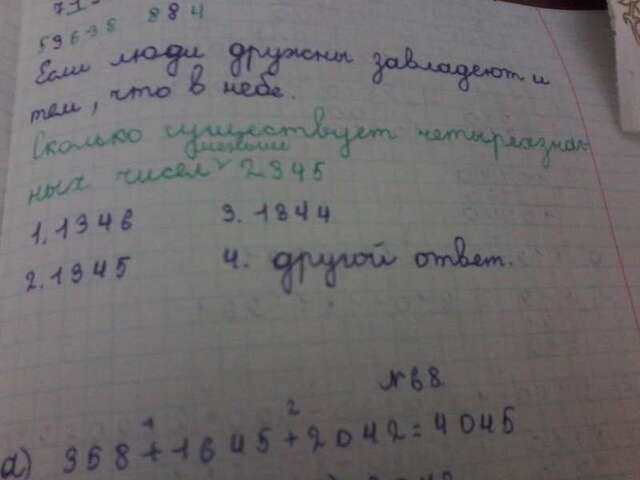 59638 884
Если люди дружны завладеют и
тем, что в небе.
Сколько существует четырёхзнач-
меньше
ных чисел 2345
1. 1346 3. 1344
2. 1345 4. другой ответ.
№68
1 2
а) 358+1645+2042=4045